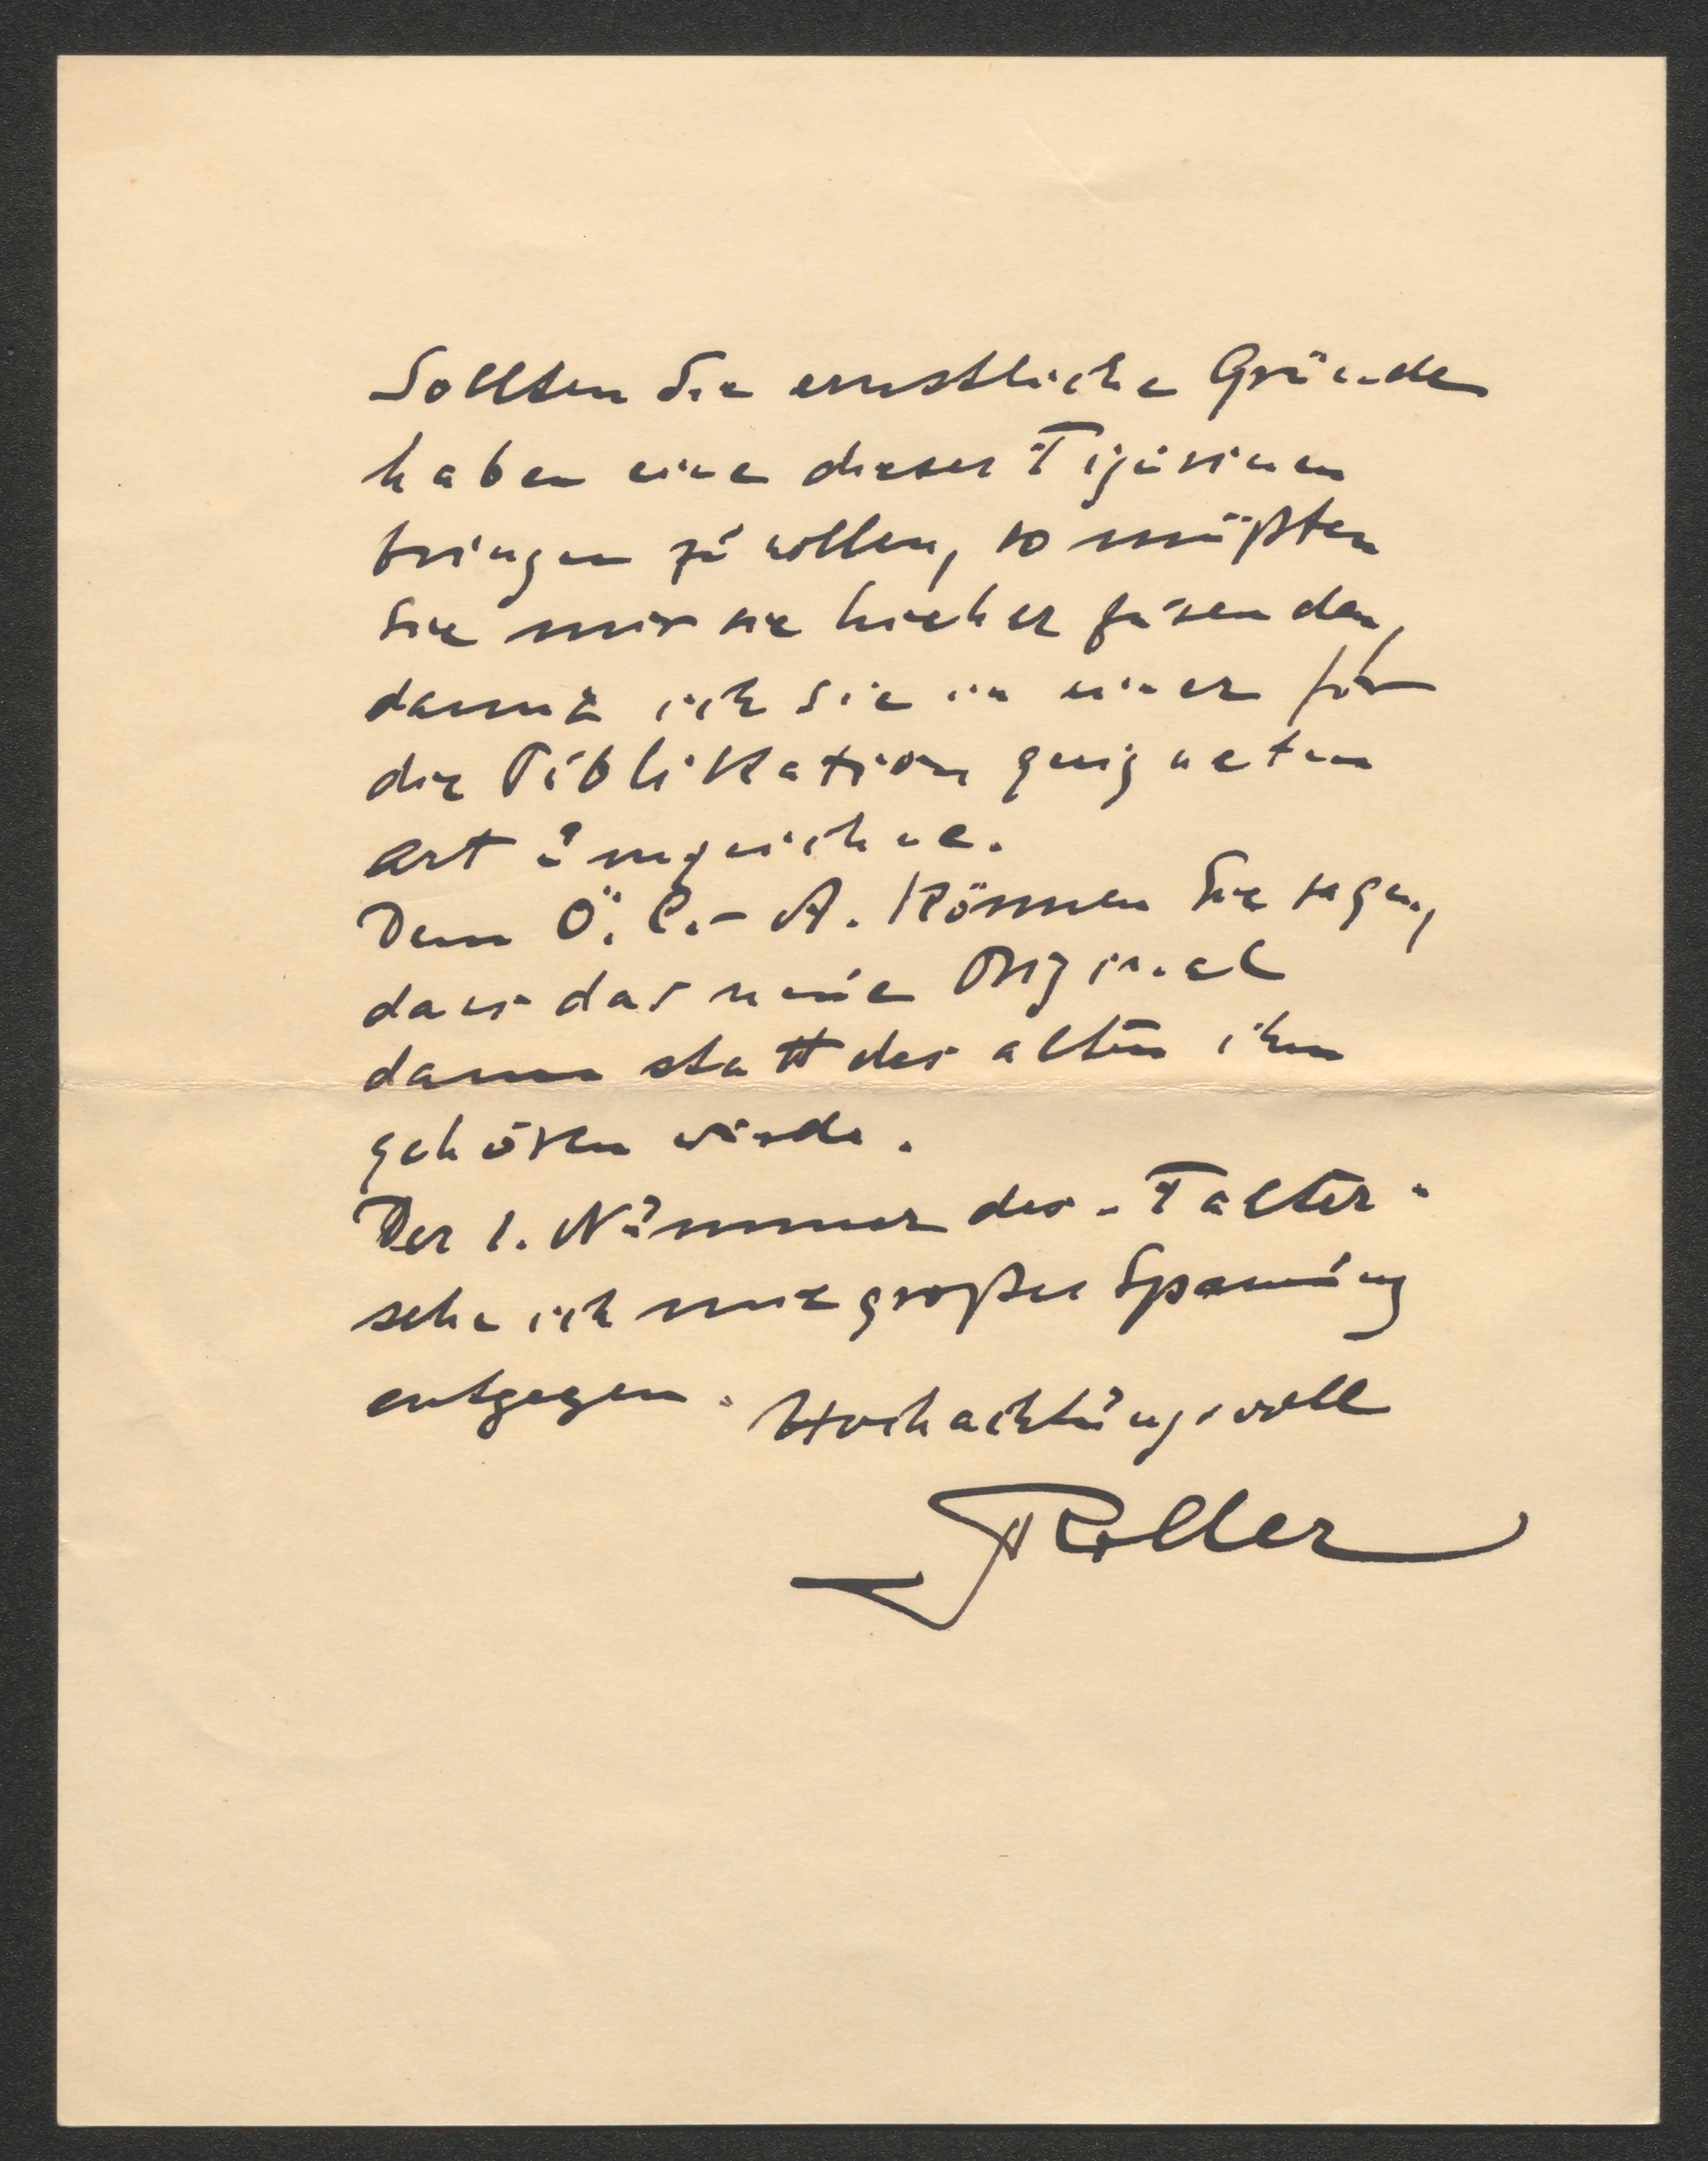 Sollten Sie ernstliche Gründe
haben eine dieser Figurinen
bringen zu wollen, so müßten
Sie mir sie hieher zusenden,
damit ich sie in einer für
die Publikation geeigneten
Art umzeichne.
Dem Ö. C.- A. können Sie sagen,
dass das neue Original
dann statt des alten ihm
gehören würde.
Der 1. Nummer des „Falter“
sehe ich mit großer Spannung
entgegen. Hochachtungsvoll
Roller